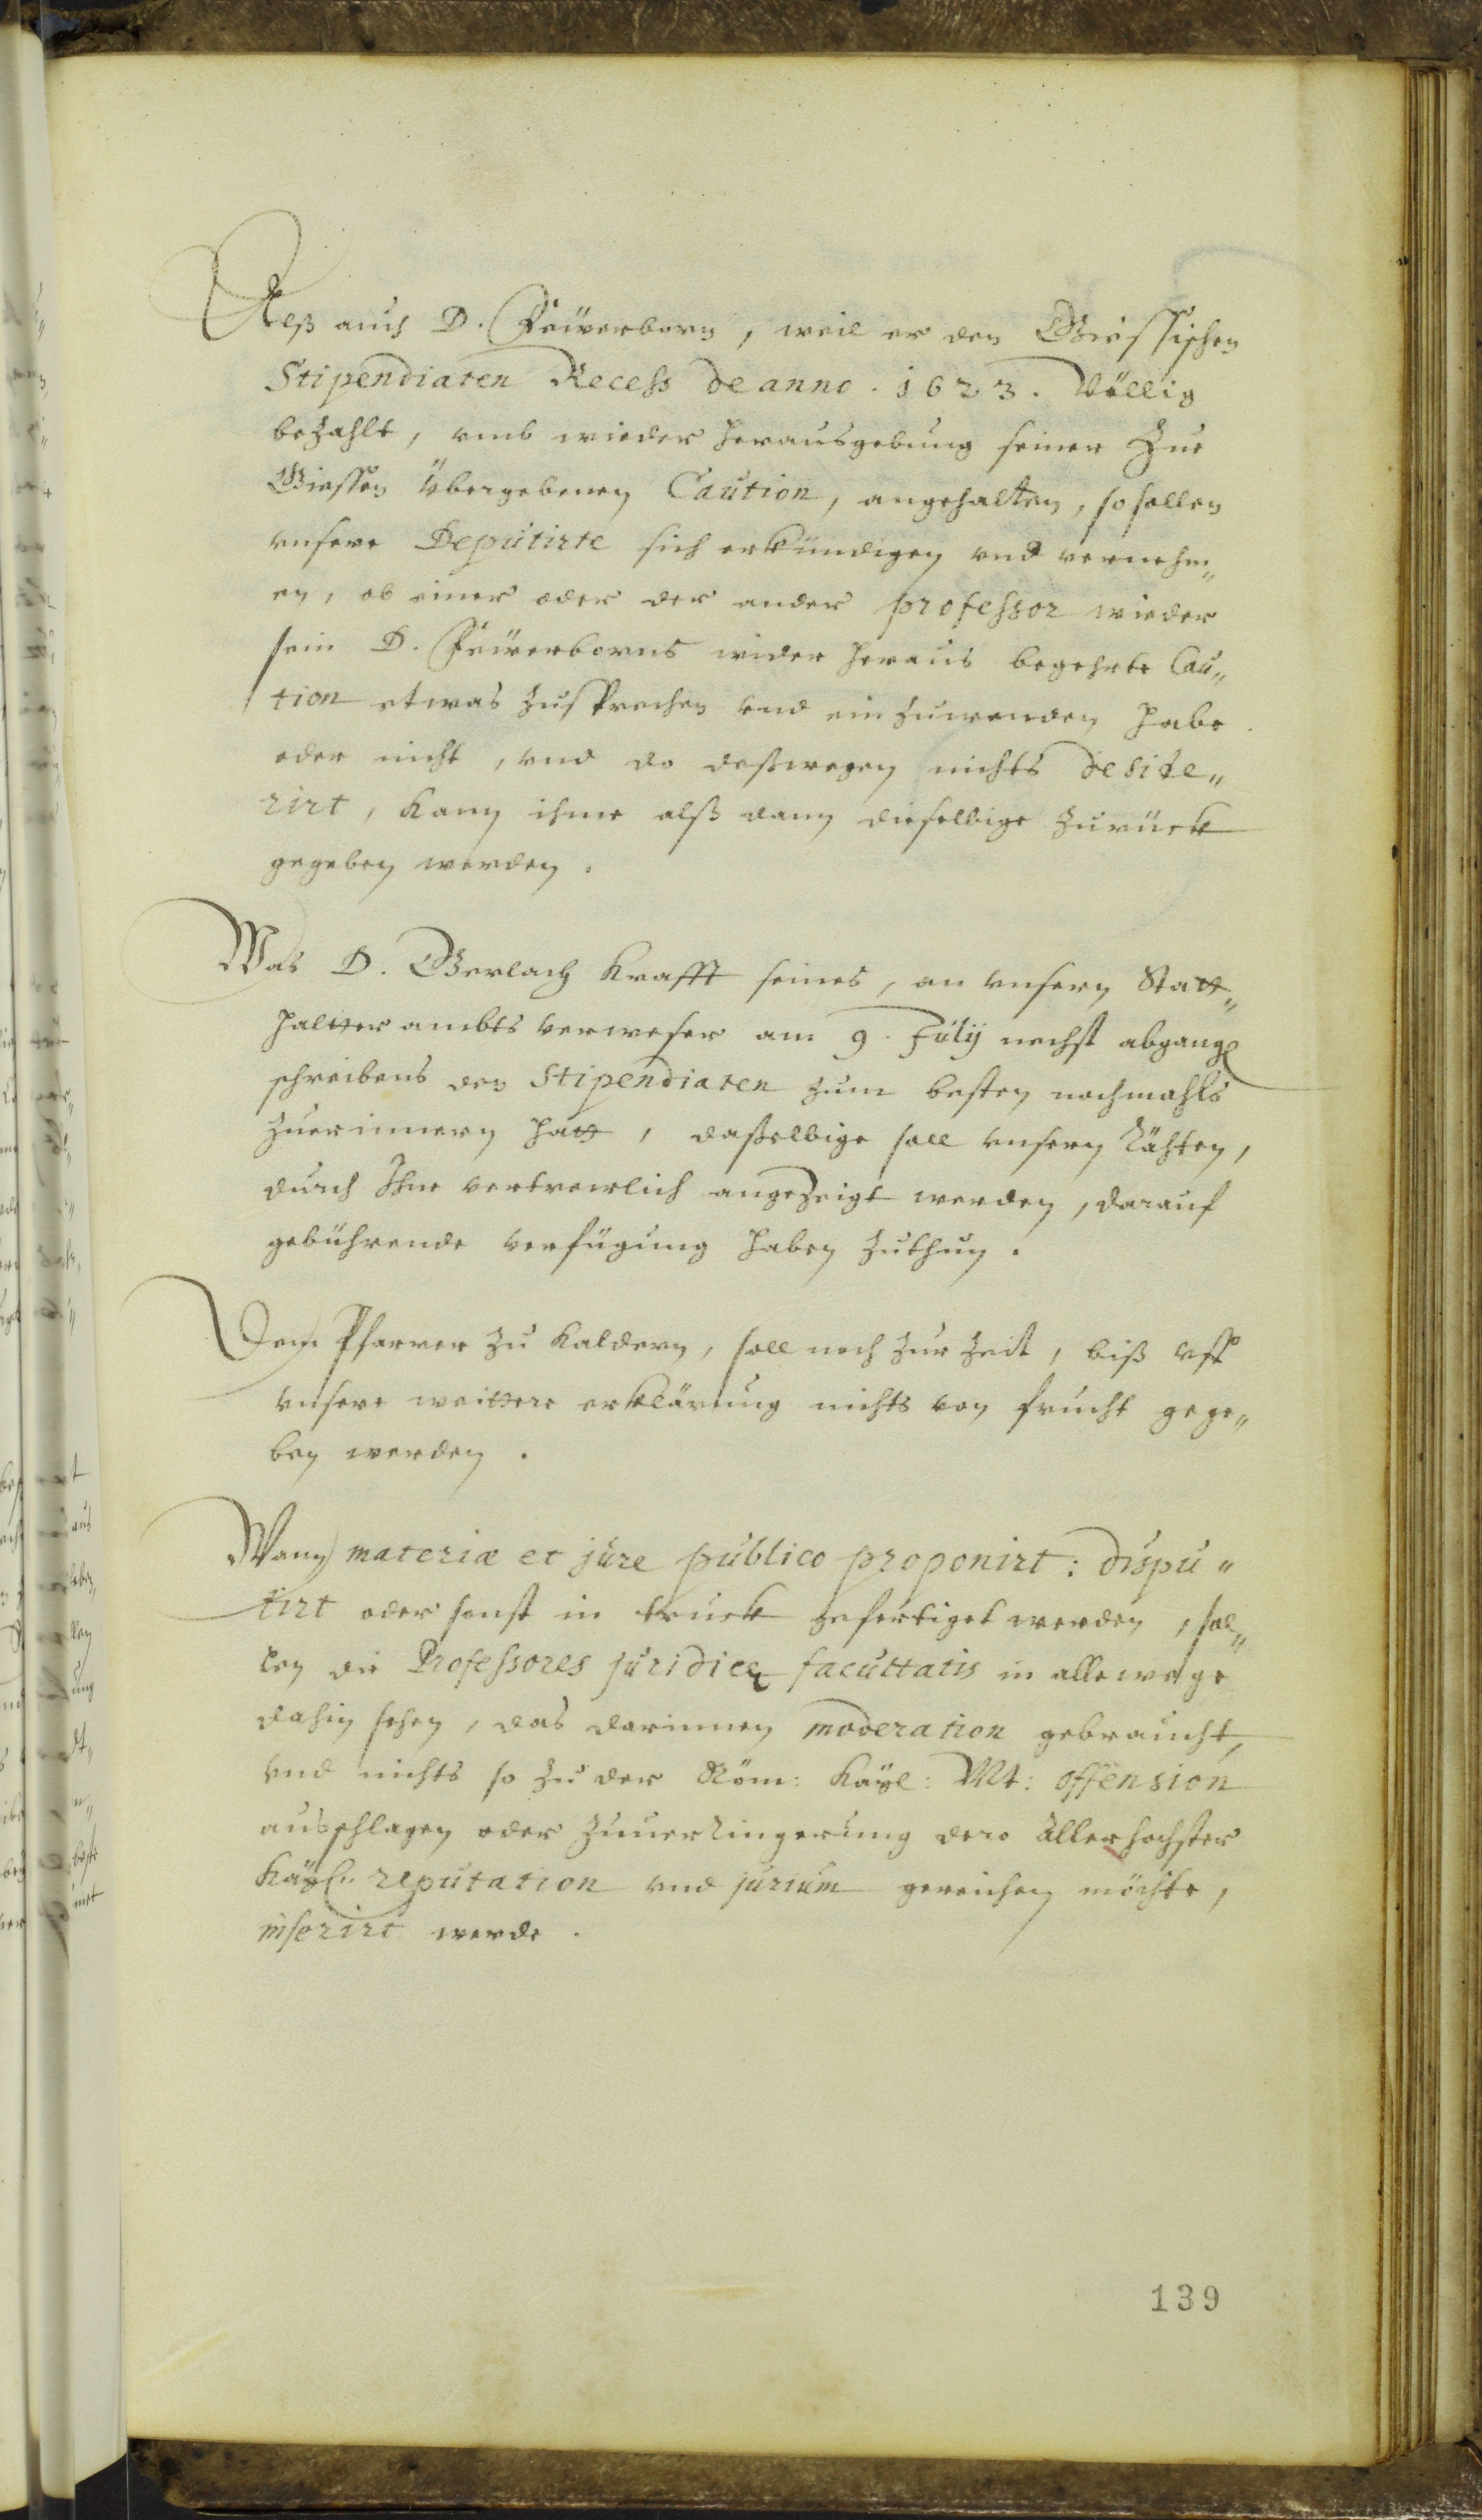 Alß auch D. Feüerborn, weil er den Giessischen
Stipendiaten Recess de anno. 1623. Völlig
bezahlt, umb wieder herausgebung seiner Zue
Giessen übergebenen Caution, angehalten, so sollen
unsere Deputirte sich erkündigen und vernehm„
en, ob einer oder der ander professor wieder
sein D. Feüerborns wider heraus begehrte Cau„
tion etwas zusprechen und einzuwenden habe
oder nicht, und do deßwegen nichts deside„
rirt, kann ihme alß dann dieselbige zurück
gegeben werden.
Was D. Gerlach Krafft seines, an unsern Statt„
haltter ambts verweser am 9. Julij nechst abgang
schreibens den Stipendiaten zum besten nochmahls
zuerinnern hatt, dasselbige soll unsern Räthen,
durch Ihne vertrewlich angezeigt werden, darauf
gebührende verfügung haben zuthun.
Dem Pfarrer zu Kaldern, soll noch zur zeit, biß uff
unsere weittere erklärung nichts von frucht gege„
ben werden.
Wann materiæ et jure publico proponirt: dispu„
tirt oder sonst in truck gefertiget werden, sol„
len die Professores juridicę facultatis in allewege
dahin sehen, das darinnen moderation gebraucht,
und nichts so zu der Röm: Kaÿl: Mt: offension
ausschlagen oder zuuerringerung dero Allerhöchster
Kaÿl: reputation und jurium gereichen möchte,
inserirt werde.
139